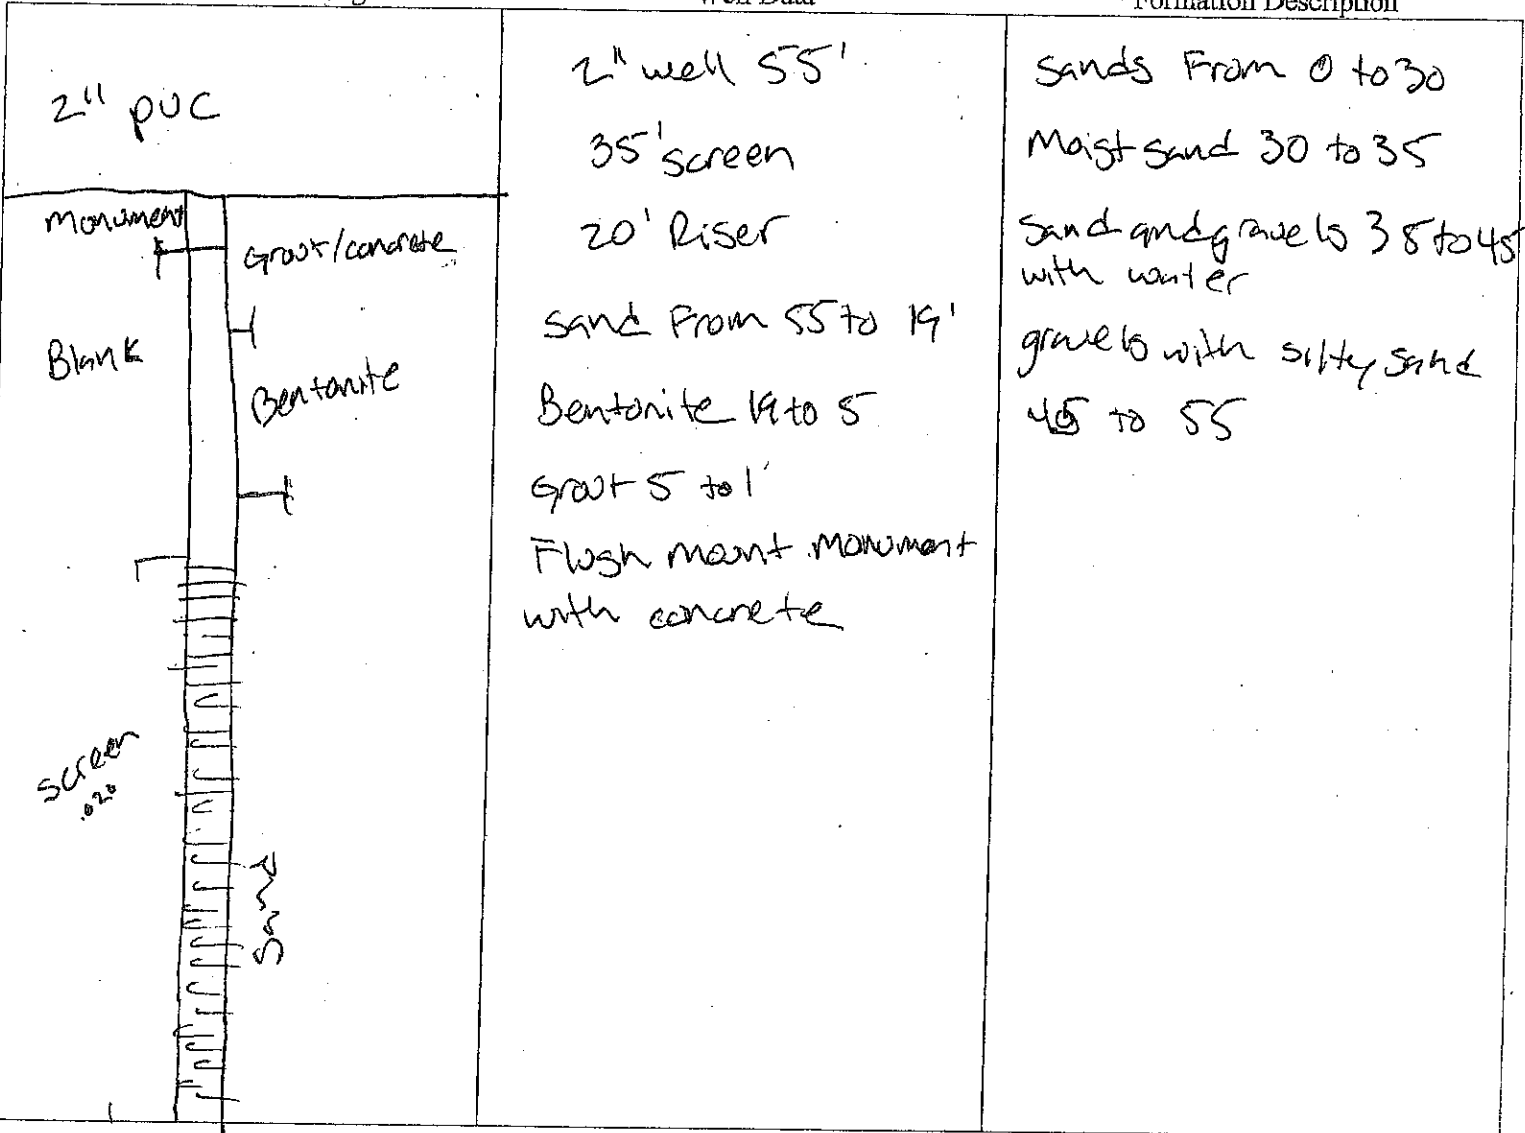 Well Data
Formation Description
2" PVC
Monument
Grout/concrete
Blank
Bentonite
Screen
.020
Sand
2" well 55'
35' screen
20' Riser
Sand From 55 to 19'
Bentonite 19 to 5
Grout 5 to 1'
Flush mount monument
with concrete
Sands From 0 to 30
Moist sand 30 to 35
Sand and gravels 35 to 45
with water
gravels with silty sand
45 to 55